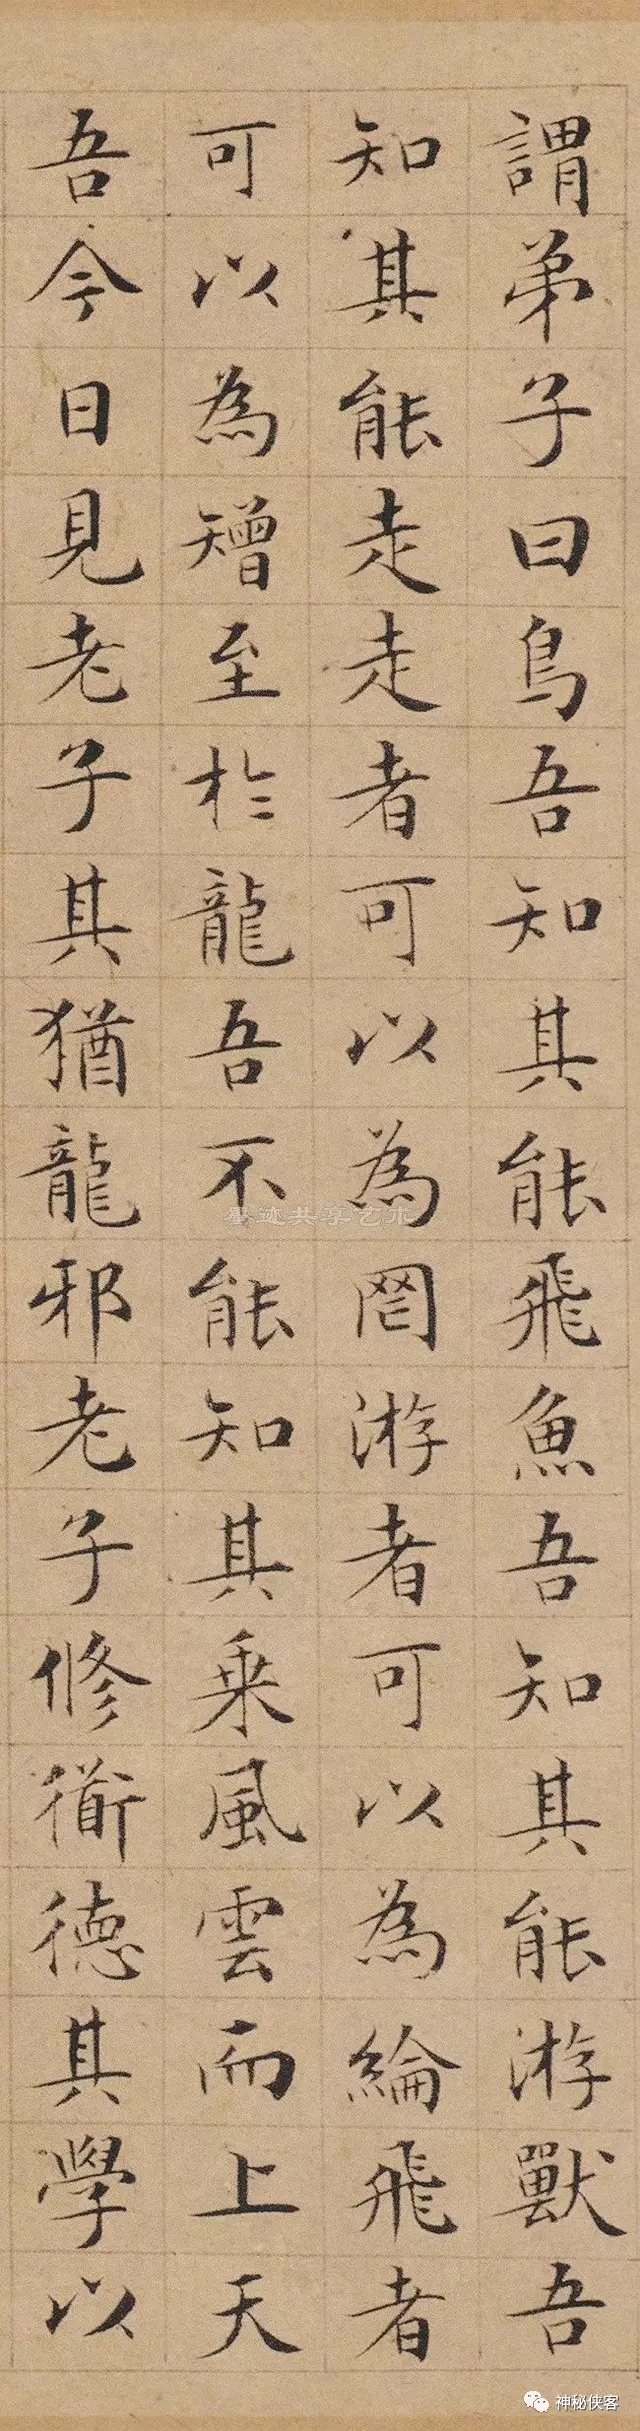 謂弟子曰鳥吾知其能飛魚吾知其能游獸吾
知其能走走者可以為罔游者可以為綸飛者
可以為矰至於龍吾不能知其乘風雲而上天
吾今日見老子其猶龍邪老子修衜德其學以
墨迹共享艺术
神秘侠客